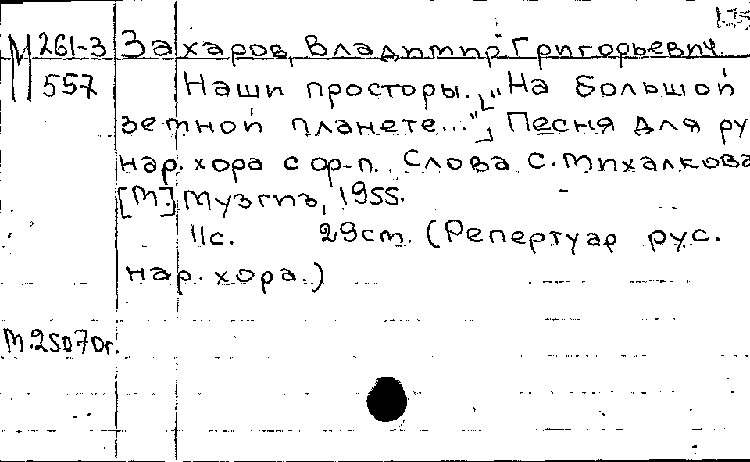 М 261-3 Захаров, Владимир Григорьевич.
557 Наши просторы. ["На большой
земной планете..."] Песня для ру
нар. хора с ф-п. Слова С. Михалкова
[М.] Музгиз, 1955.
11с. 29см. (Репертуар рус.
нар. хора.)
М.25070г.